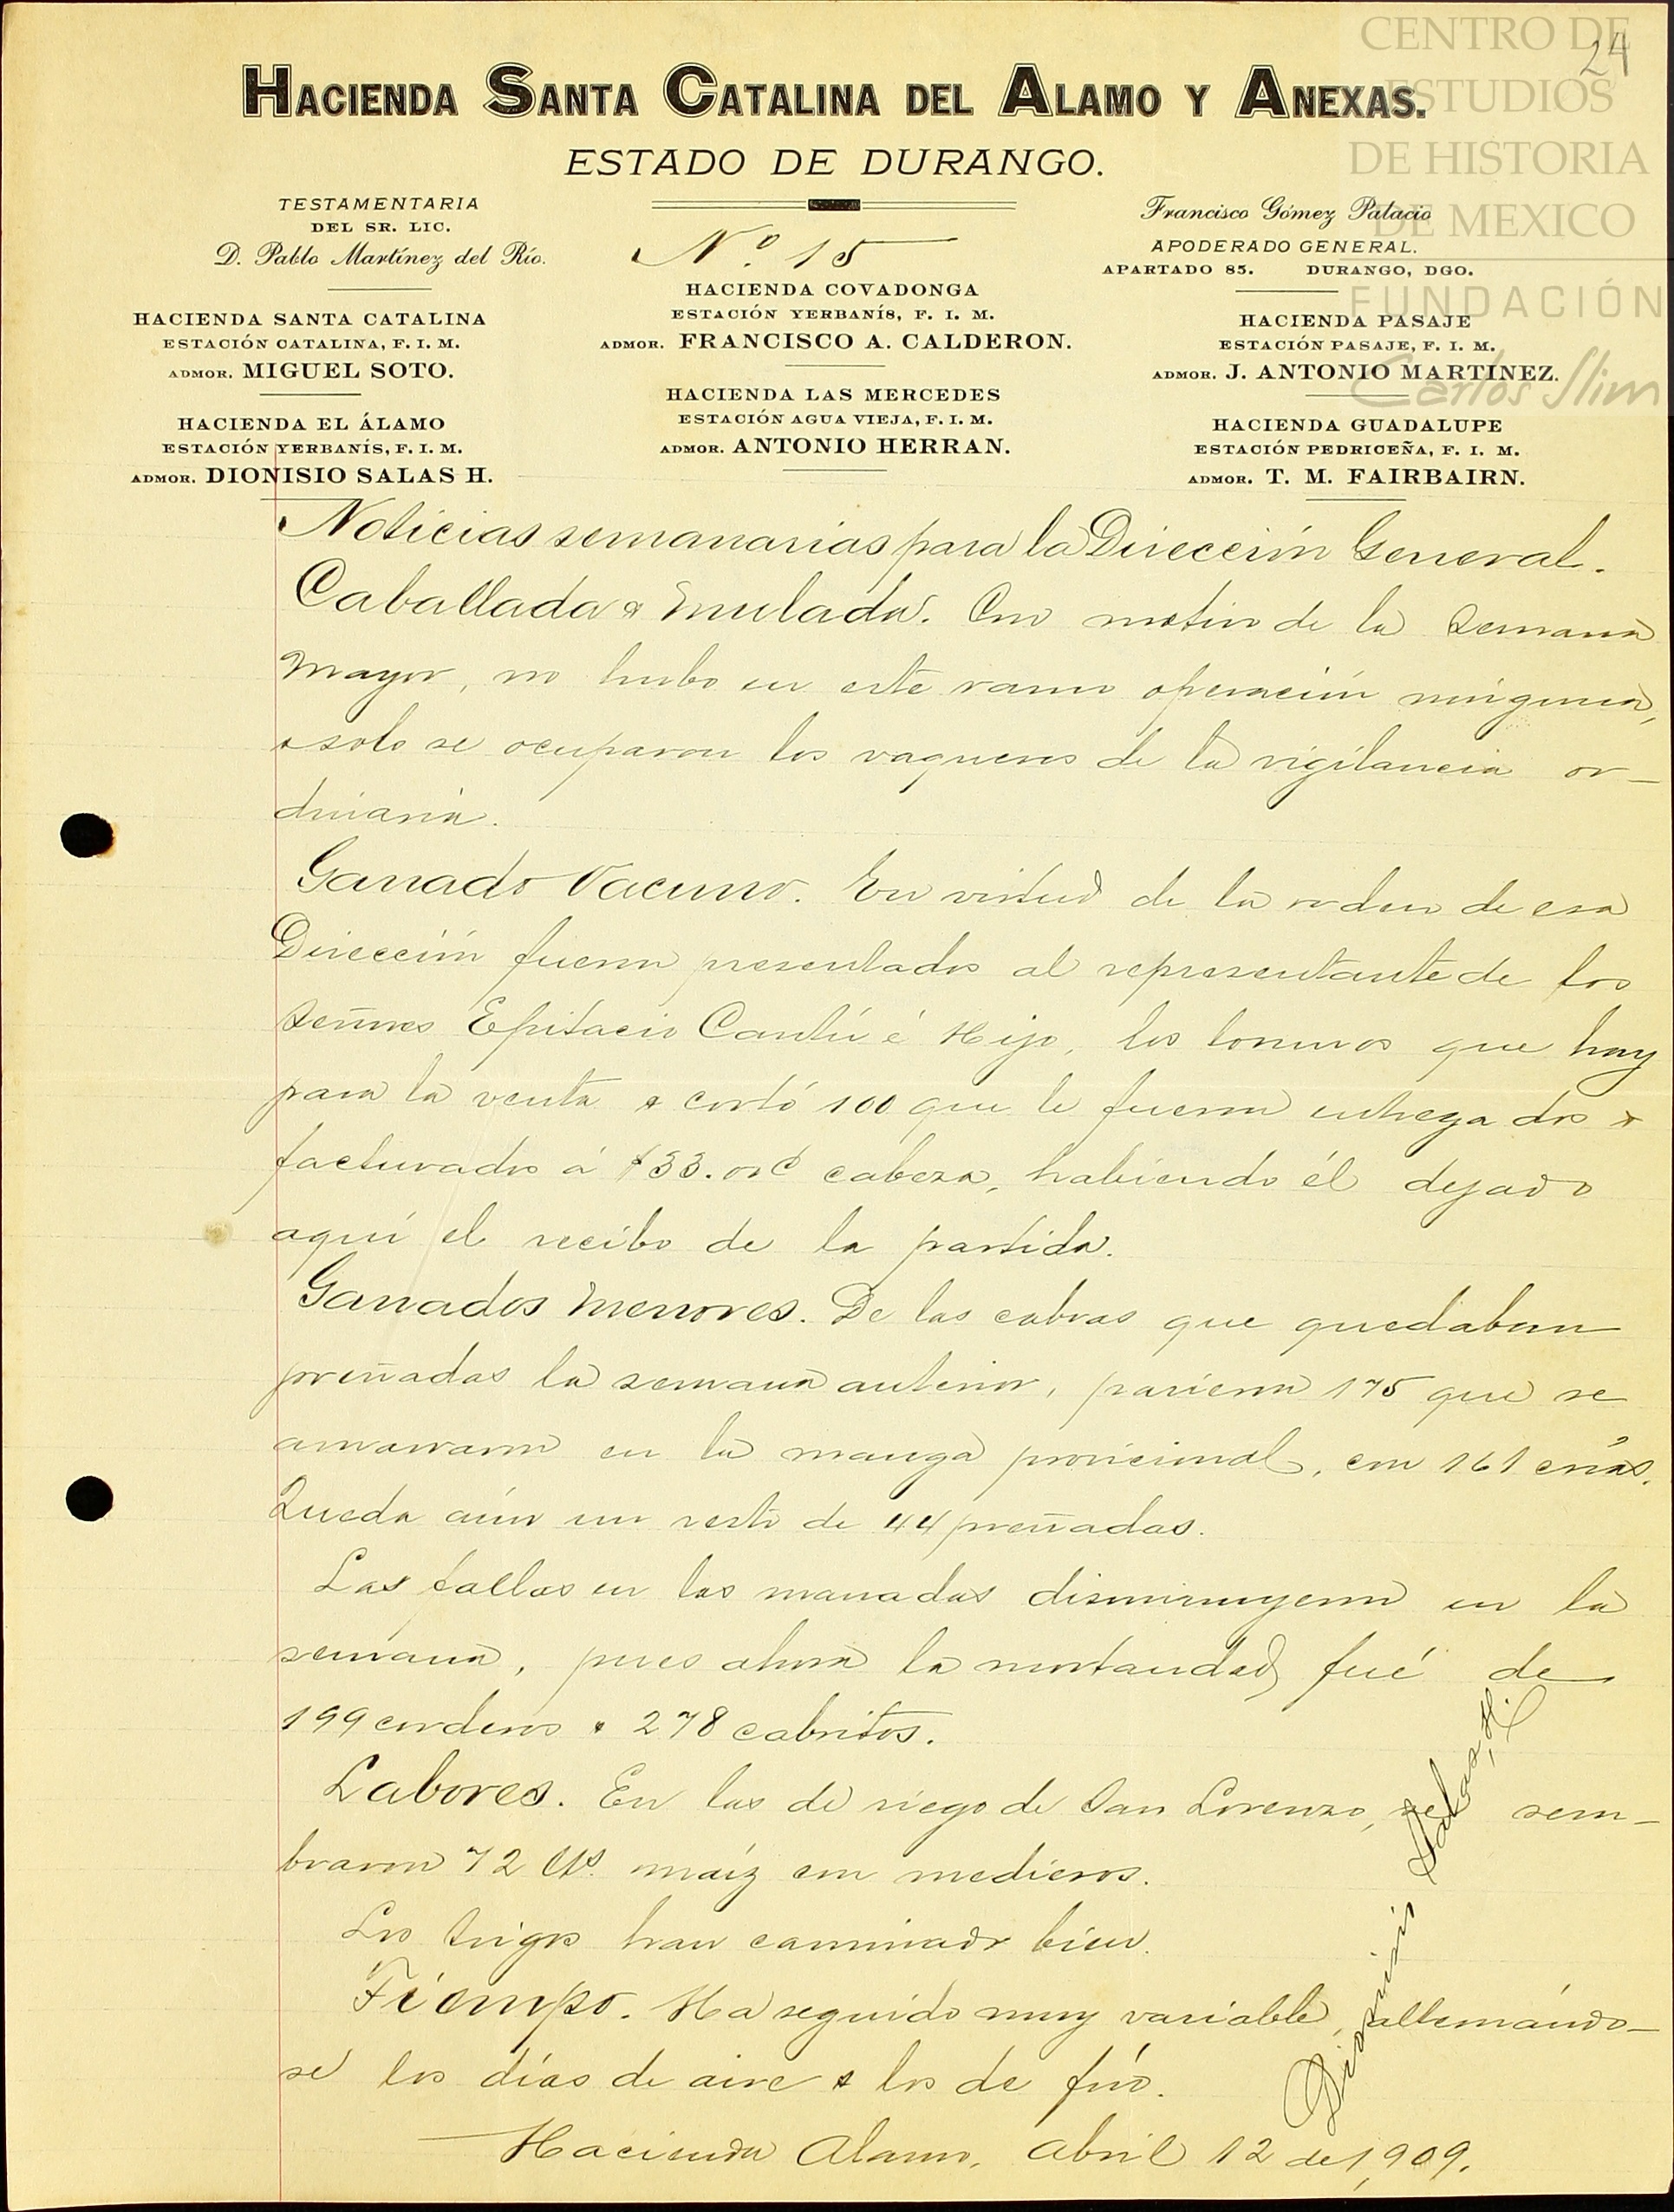 CENTRO DE
ESTUDIOS
DE HISTORIA
DE MEXICO
FUNDACIÓN
Carlos Slim
24
HACIENDA SANTA CATALINA DEL ALAMO Y ANEXAS.
ESTADO DE DURANGO.
TESTAMENTARIA
DEL SR. LIC.
D. Pablo Martínez del Río.
HACIENDA SANTA CATALINA
ESTACIÓN CATALINA, F. I. M.
ADMOR. MIGUEL SOTO.
HACIENDA EL ÁLAMO
ESTACIÓN YERBANÍS, F. I. M.
ADMOR. DIONISIO SALAS H.
Nº 15
HACIENDA COVADONGA
ESTACIÓN YERBANÍS, F. I. M.
ADMOR. FRANCISCO A. CALDERON.
HACIENDA LAS MERCEDES
ESTACIÓN AGUA VIEJA, F. I. M.
ADMOR. ANTONIO HERRAN.
Francisco Gómez Palacio
APODERADO GENERAL.
APARTADO 85. DURANGO, DGO.
HACIENDA PASAJE
ESTACIÓN PASAJE, F. I. M.
ADMOR. J. ANTONIO MARTINEZ.
HACIENDA GUADALUPE
ESTACIÓN PEDRICEÑA, F. I. M.
ADMOR. T. M. FAIRBAIRN.
Noticias semanarias para la Dirección General.
Caballada y Mulada. Con motivo de la Semana
Mayor, no hubo en este ramo operación ninguna,
y solo se ocuparon los vaqueros de la vigilancia or-
dinaria.
Ganado Vacuno. En virtud de la orden de esa
Dirección fueron presentados al representante de los
Señores Epitacio Cantú é Hijo, los toruños que hay
para la venta y cortó 100 que le fueron entregados y
facturados á $33.00 ¢ cabeza, habiendo él dejado
aquí el recibo de la partida.
Ganados Menores. De las cabras que quedaban
preñadas la semana anterior, parieron 175 que se
amarraron en la manga provicional, con 161 crías.
Queda aún un resto de 44 preñadas.
Las fallas en las manadas disminuyeron en la
semana, pues ahora la mortandad fué de
199 corderos y 278 cabritos.
Labores. En las de riego de San Lorenzo, se sem-
braron 72 Cts. maíz con medieros.
Los trigos han caminado bien.
Tiempo. Ha seguido muy variable, alternándo-
se los días de aire y los de frío.
Hacienda Alamo, Abril 12 de 1,909.
Dionisio Salas, H.